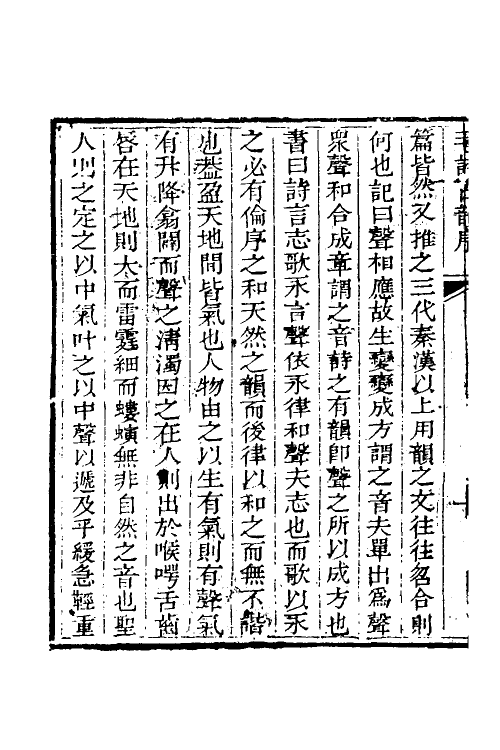 毛詩古韻序
篇皆然又推之三代秦漢以上用韻之文往往吻合則
何也記曰聲相應故生變變成方謂之音夫單出爲聲
衆聲和合成章謂之音詩之有韻卽聲之所以成方也
書曰詩言志歌永言聲依永律和聲夫志也而歌以永
之必有倫序之和天然之韻而後律以和之而無不諧
也葢盈天地間皆氣也人物由之以生有氣則有聲氣
有升降翕闢而聲之淸濁因之在人則出於喉咢舌齒
唇在天地則大而雷霆細而螻螾無非自然之音也聖
人則之定之以中氣叶之以中聲以遞及乎緩急輕重